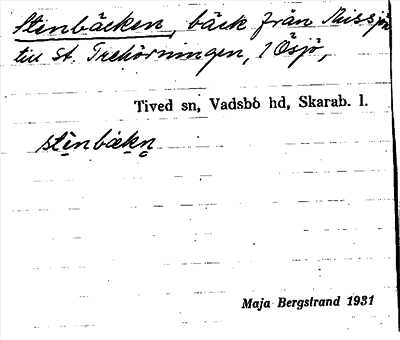 Stenbäcken, bäck från
till St. Trehörningen, i Ösjö,
Tived sn, Vadsbo hd, Skarab. l.
Maja Bergstrand 1931